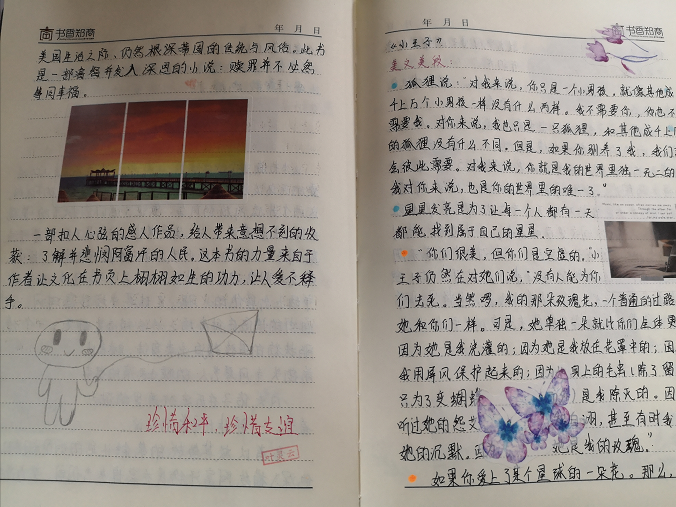 书香知商
年 月 日
美国生活之际，仍然根深蒂固的传统与风俗。此书
是一部睿智并发人深思的小说：赎罪并不必然
等同幸福。
一部扣人心弦的感人作品，给人带来意想不到的收
获：了解并怜悯阿富汗的人民。这本书的力量来自于
作者让文化在书页上栩栩如生的功力，让人爱不释
手。
珍惜和平，珍惜友谊
年 月 日
书香知商
《小王子》
美文美段：
狐狸说："对我来说，你只是一个小男孩，就像其他成
千上万个小男孩一样没有什么两样。我不需要你，你也不
需要我。对你来说，我也只是一只狐狸，和其他成千上
的狐狸没有什么不同。但是，如果你驯养了我，我们
会彼此需要。对我来说，你就是我的世界里独一无二的
我对你来说，也是你的世界里的唯一了。"
星星会亮是为了让每一个人都有一天
都能找到属于自己的星星
"你们很美，但你们是空虚的。"小
王子仍然在对她们说，"没有人能为你
们去死。当然啰，我的那朵玫瑰花，一个普通的过路
她和你们一样。可是，她单独一朵就比你们全体更
因为她是我浇灌的；因为她是我放在花罩中的；因
我用屏风保护起来的；因为 身上的毛虫（除了留
只为了变蝴蝶 是我除灭的。因
听过她的怨艾 诩，甚至有时我
她的沉默。 她是我的玫瑰。"
如果你爱上了某个星球的一朵花。那么，